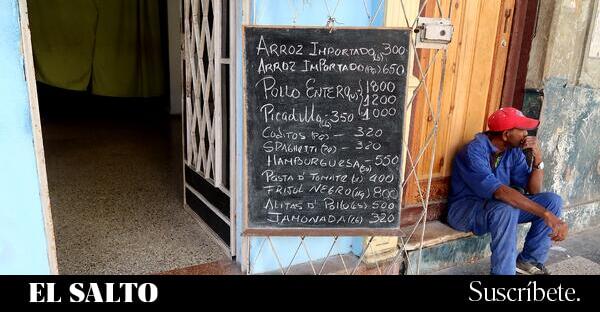 ARROZ IMPORTADO(LB) 300
ARROZ IMPORTADO(PQ) 650
POLLO ENTERO(U) 1800
1200
PICADILLO(LB) 350 1000
CODITOS (PQ) - 320
SPAGHETTI (PQ) - 320
HAMBURGUESA(5U) - 550
PASTA D' TOMATE (U) 400
FRIJOL NEGRO(KG) 800
ALITAS D' POLLO(LB) 500
JAMONADA(LB) 320
EL SALTO
Suscríbete.